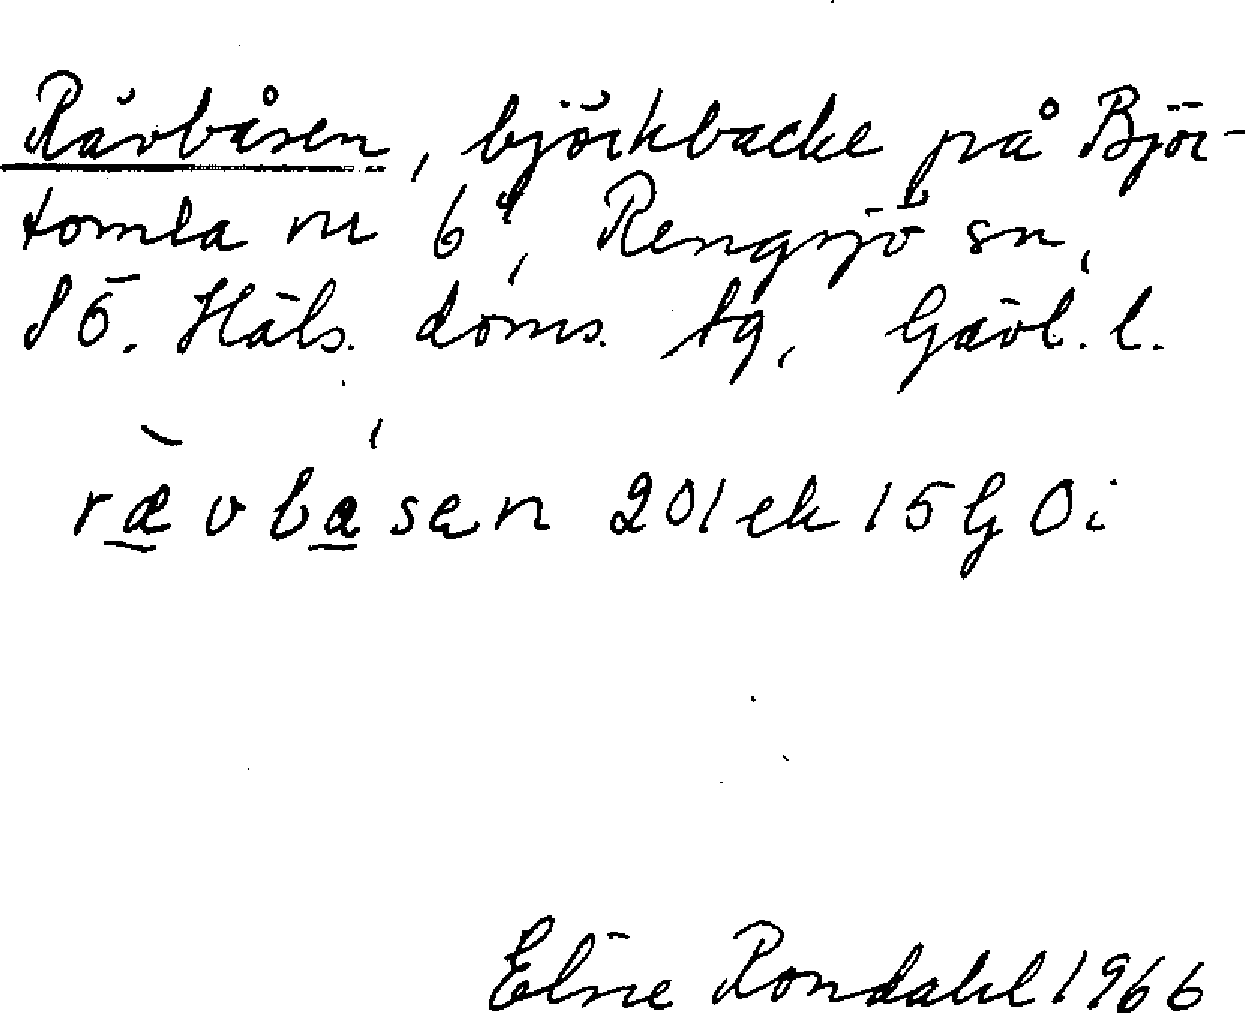 Rävbåsen, björkbacke på Björ-
tomta nr 6⁹, Rengsjö sn,
SÖ. Häls. doms. tg, Gävl. l.
ræ̀vbásen 201 ek 15G 0i
Elsie Rondahl 1966